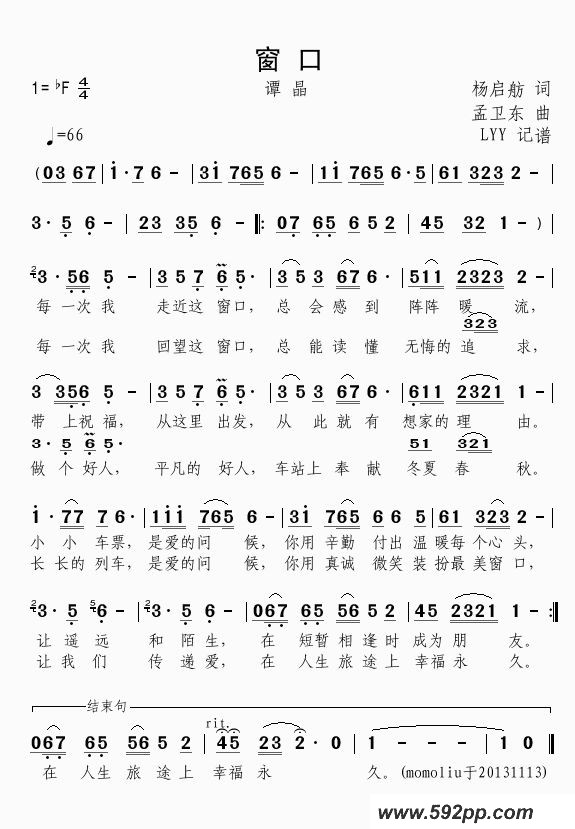 窗 口
1= ♭F 4/4 谭 晶 杨启舫 词
孟卫东 曲
♩=66 LYY 记谱
(03 67 | i·7 6 - | 3i 765 6 - | 1i 765 6·5 | 61 323 2 - |
3·5 6 - | 23 35 6 - ‖: 07 65 6 5 2 | 45 32 1 - ) |
2 3·56 5 - | 3 5 7 6 5· | 3 5 3 67 6· | 511 2323 2 - |
每 一次 我 走近这 窗口, 总 会 感 到 阵阵 暖 流,
323
每 一次 我 回望这 窗口, 总 能 读 懂 无悔的 追 求,
3 356 5 - | 3 5 7 6 5· | 3 5 3 67 6· | 611 2321 1 - |
带 上祝 福, 从这里 出发, 从 此 就 有 想家的 理 由。
3· 5 6 5 51 321
做 个 好人, 平凡的 好人, 车站上 奉 献 冬夏 春 秋。
i·77 7 6· | 1ii 765 6 - | 3i 765 6 6 5 | 61 323 2 - |
小 小 车票, 是爱的问 候, 你用 辛勤 付出 温 暖每 个心 头,
长 长的 列车, 是爱的问 候, 你用 真诚 微笑 装 扮最 美窗 口,
2 3·5 5 6 - | 2 3·5 6 - | 067 65 56 5 2 | 45 2321 1 - :‖
让 遥 远 和 陌生, 在 短暂 相 逢时 成为 朋 友。
让 我 们 传 递爱, 在 人生 旅 途上 幸福 永 久。
结束句
rit.
067 65 56 5 2 | 45 23 2·0 | 1 - - - | 1 0 0 0 ‖
在 人生 旅 途上 幸福 永 久。(momoliu于20131113)
www.592pp.com